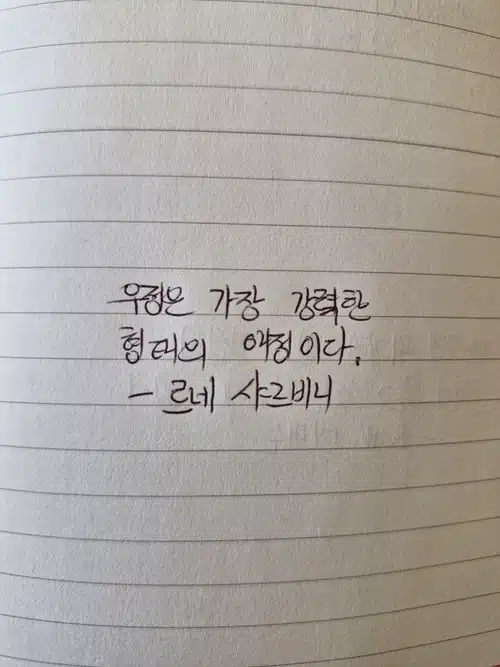 우정은 가장 강력한
형태의 애정이다.
- 르네 샤르비니